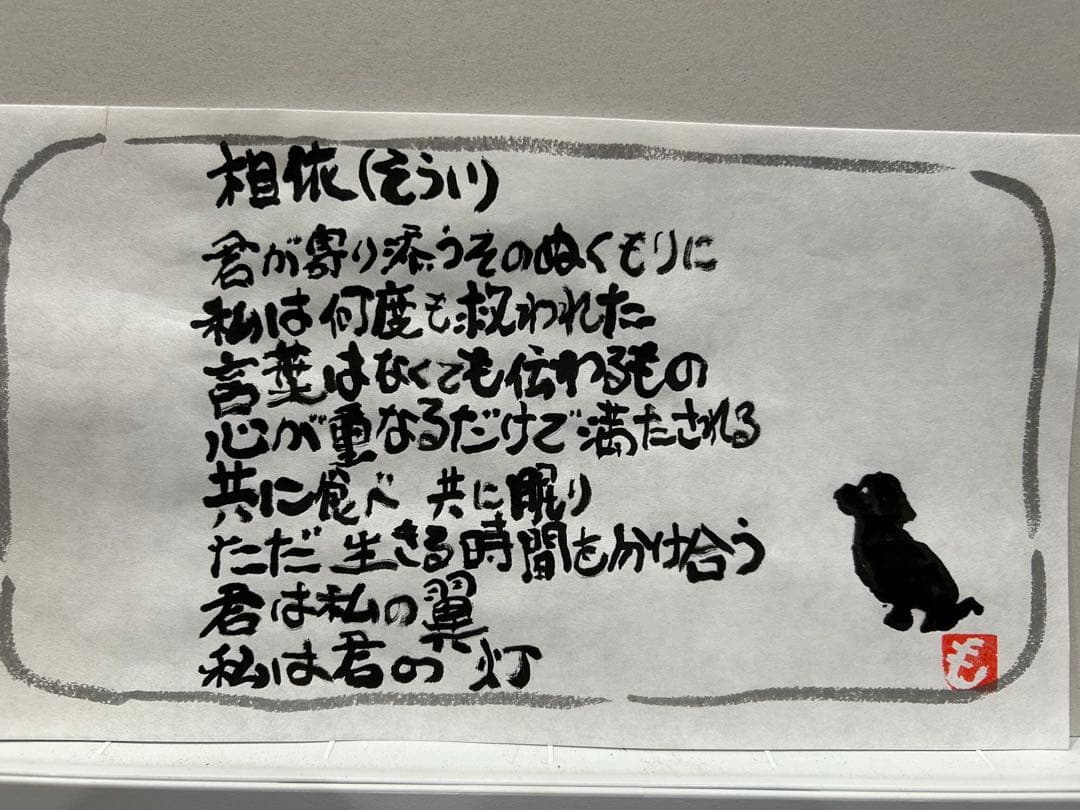 相依(そうい)
君が寄り添うそのぬくもりに
私は何度も救われた
言葉はなくても伝わるもの
心が重なるだけで満たされる
共に食べ 共に眠り
ただ生きる時間を分け合う
君は私の翼
私は君の灯
も